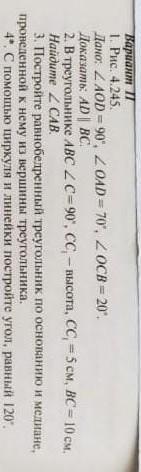 Вариант II
1. Рис. 4.245.
Дано: ∠ AOD = 90°, ∠ OAD = 70°, ∠ OCB = 20°.
Доказать: AD ∥ BC.
2. В треугольнике ABC ∠ C = 90°, CC₁ – высота, CC₁ = 5 см, BC = 10 см.
Найдите ∠ CAB.
3. Постройте равнобедренный треугольник по основанию и медиане,
проведенной к нему из вершины треугольника.
4*. С помощью циркуля и линейки постройте угол, равный 120°.